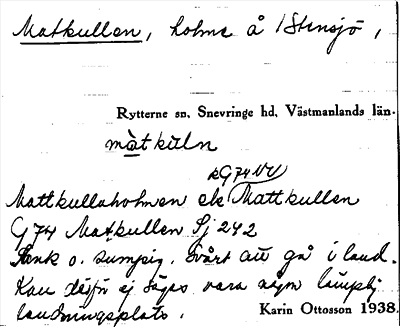 Matkullen, holme å Stensjö,
Rytterne sn. Snevringe hd. Västmanlands län.
màtkuln
G 74 NV
Mattkullaholmen el. Mattkullen
G 74 Matkullen Sj 242
Sank o. sumpig. Svårt att gå i land.
Kan därför ej sägas vara någon lämplig
landningsplats.
Karin Ottosson 1938.